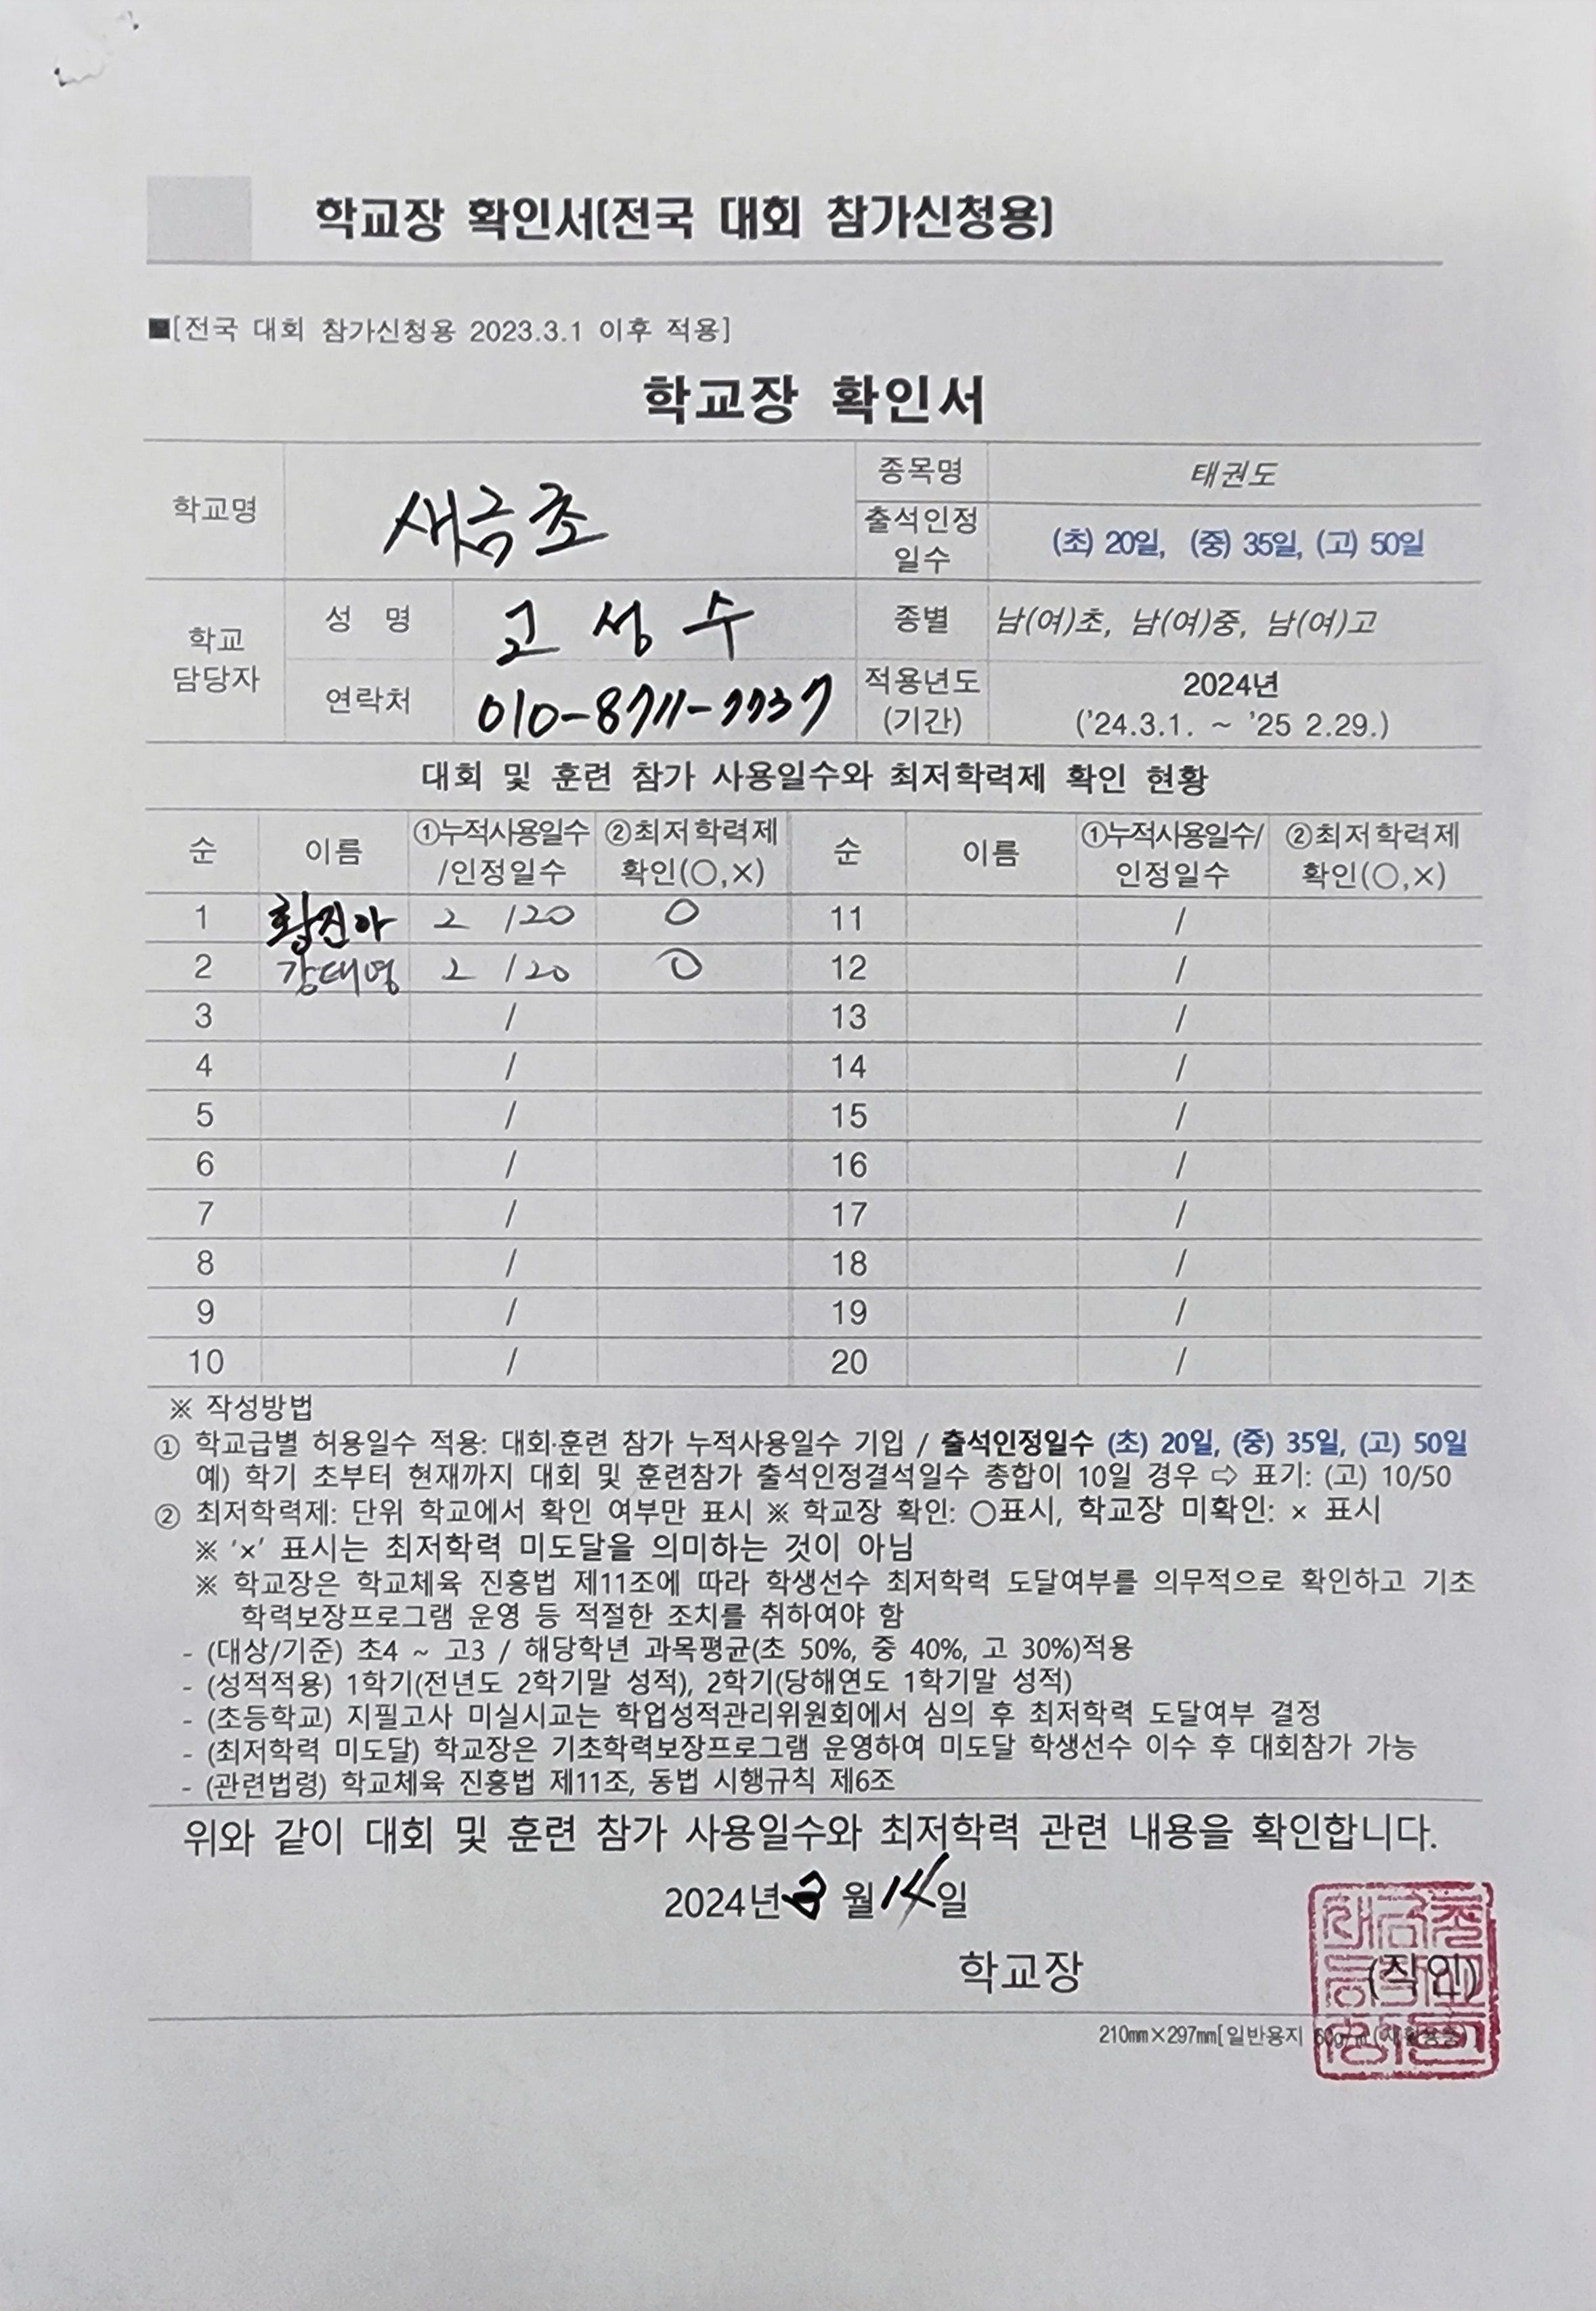 학교장 확인서(전국 대회 참가신청용)
■[전국 대회 참가신청용 2023.3.1 이후 적용]
학교장 확인서
학교명 새금초 종목명 태권도
출석인정 일수 (초) 20일, (중) 35일, (고) 50일
학교 담당자 성 명 고성수 종별 남(여)초, 남(여)중, 남(여)고
연락처 010-8711-7737 적용년도 (기간) 2024년 ('24.3.1. ~ '25 2.29.)
대회 및 훈련 참가 사용일수와 최저학력제 확인 현황
순 이름 ①누적사용일수/인정일수 ②최저학력제 확인(○,×) 순 이름 ①누적사용일수/인정일수 ②최저학력제 확인(○,×)
1 황진아 2 /20 O 11 /
2 강대영 2 /20 O 12 /
3 / 13 /
4 / 14 /
5 / 15 /
6 / 16 /
7 / 17 /
8 / 18 /
9 / 19 /
10 / 20 /
※ 작성방법
① 학교급별 허용일수 적용: 대회·훈련 참가 누적사용일수 기입 / 출석인정일수 (초) 20일, (중) 35일, (고) 50일
예) 학기 초부터 현재까지 대회 및 훈련참가 출석인정결석일수 총합이 10일 경우 ⇨ 표기: (고) 10/50
② 최저학력제: 단위 학교에서 확인 여부만 표시 ※ 학교장 확인: ○표시, 학교장 미확인: × 표시
※ '×' 표시는 최저학력 미도달을 의미하는 것이 아님
※ 학교장은 학교체육 진흥법 제11조에 따라 학생선수 최저학력 도달여부를 의무적으로 확인하고 기초
학력보장프로그램 운영 등 적절한 조치를 취하여야 함
- (대상/기준) 초4 ~ 고3 / 해당학년 과목평균(초 50%, 중 40%, 고 30%)적용
- (성적적용) 1학기(전년도 2학기말 성적), 2학기(당해연도 1학기말 성적)
- (초등학교) 지필고사 미실시교는 학업성적관리위원회에서 심의 후 최저학력 도달여부 결정
- (최저학력 미도달) 학교장은 기초학력보장프로그램 운영하여 미도달 학생선수 이수 후 대회참가 가능
- (관련법령) 학교체육 진흥법 제11조, 동법 시행규칙 제6조
위와 같이 대회 및 훈련 참가 사용일수와 최저학력 관련 내용을 확인합니다.
2024년 월 14일
학교장 (직인)
새금초
등학교
장의인
210㎜×297㎜[일반용지 60g/㎡(재활용품)]